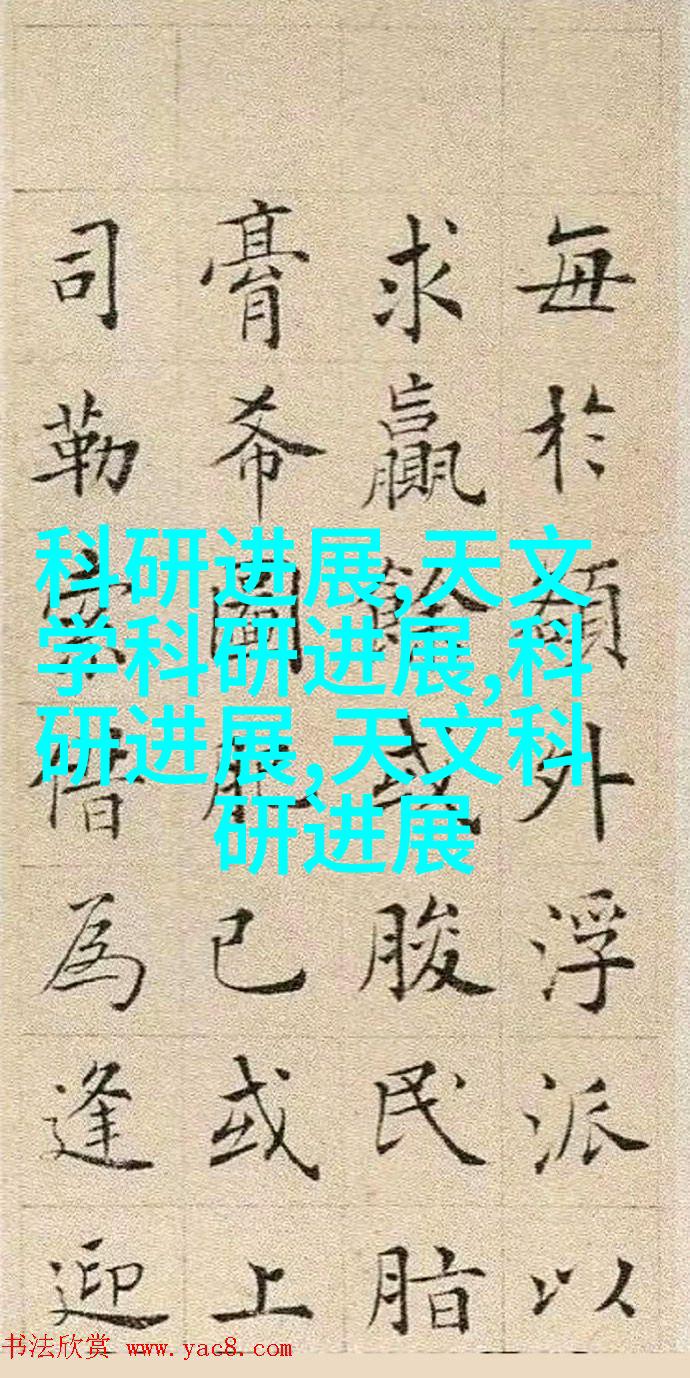 每於額外浮派以
求贏餘或朘民脂
膏希圖肥已或上
司勒索借為逢迎
科研进展,天文
学科研进展,科
研进展,天文科
研进展
书法欣赏 www.yac8.com